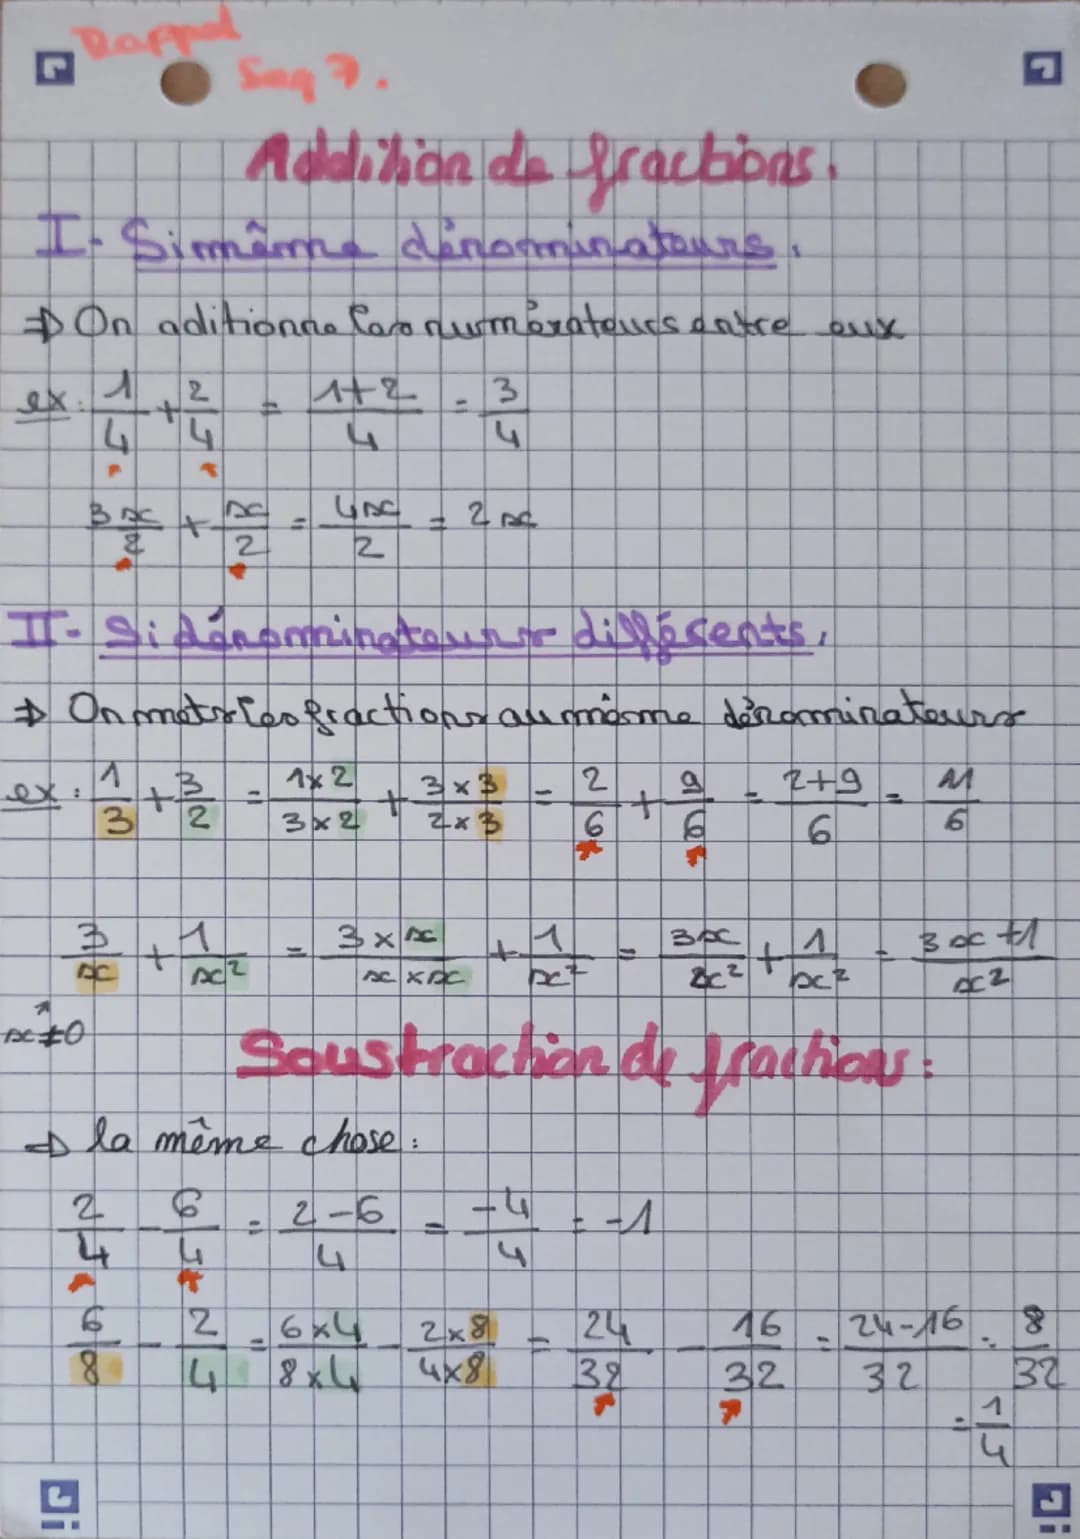 Rappel
Seq 7.
Addition de fractions.
I- Si même dénominateurs.
⇒ On aditionne les numérateurs entre eux
ex: 1/4 + 2/4 = (1+2)/4 = 3/4
3x/2 + x/2 = 4x/2 = 2x
II- Si dénominateurs différents.
⇒ On mets les fractions au même dénominateurs
ex: 1/3 + 3/2 = (1×2)/(3×2) + (3×3)/(2×3) = 2/6 + 9/6 = (2+9)/6 = 11/6
3/x + 1/x² = (3×x)/(x×x) + 1/x² = 3x/x² + 1/x² = (3x+1)/x²
x≠0
Soustraction de fractions:
⇒ la même chose:
2/4 - 6/4 = (2-6)/4 = -4/4 = -1
6/8 - 2/4 = (6×4)/(8×4) - (2×8)/(4×8) = 24/32 - 16/32 = (24-16)/32 = 8/32
= 1/4